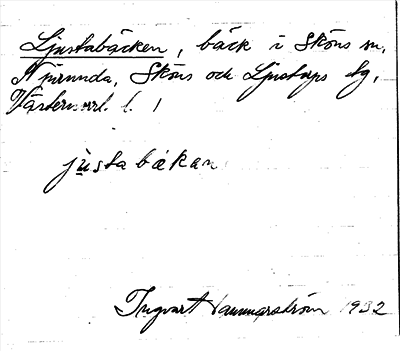 Ljustabäcken, bäck i Sköns sn,
Njurunda, Sköns och Ljustorps tg,
Västernorrl. l.
justabäkan
Ingvart Hammarström 1932